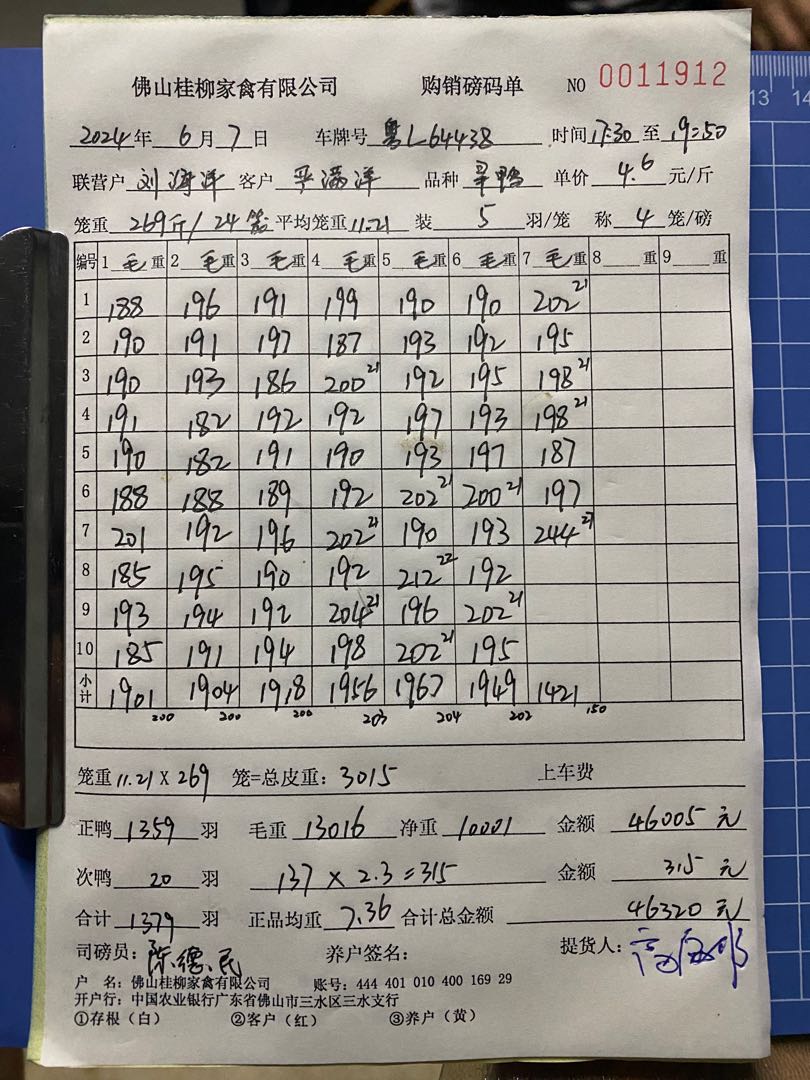 佛山桂柳家禽有限公司 购销磅码单 NO 0011912
2024年 6月 7日 车牌号 粤L64438 时间 17:30 至 19:50
联营户 刘海洋 客户 平满洋 品种 旱鸭 单价 4.6 元/斤
笼重 269斤/24笼 平均笼重 11.21 装 5 羽/笼 称 4 笼/磅
编号 1 毛 重 2 毛 重 3 毛 重 4 毛 重 5 毛 重 6 毛 重 7 毛 重 8 重 9 重
1 188 196 191 199 190 190 202 21
2 190 191 197 187 193 192 195
3 190 193 186 200 21 192 195 198 21
4 191 182 192 192 197 193 198 21
5 190 182 191 190 193 197 187
6 188 188 189 192 202 21 200 21 197
7 201 192 196 202 21 190 193 244 27
8 185 195 190 192 212 22 192
9 193 194 192 204 21 196 202 21
10 185 191 194 198 202 21 195
小计 1901 1904 1918 1956 1967 1949 1421
200 200 200 203 204 202 150
笼重 11.21 X 269 笼=总皮重: 3015 上车费
正鸭 1359 羽 毛重 13016 净重 10001 金额 46005 元
次鸭 20 羽 137 X 2.3 = 315 金额 315 元
合计 1379 羽 正品均重 7.36 合计总金额 46320 元
司磅员: 陈德民 养户签名: 提货人:
户 名: 佛山桂柳家禽有限公司 账号: 444 401 010 400 169 29
开户行: 中国农业银行广东省佛山市三水区三水支行
①存根(白) ②客户(红) ③养户(黄)
13 14